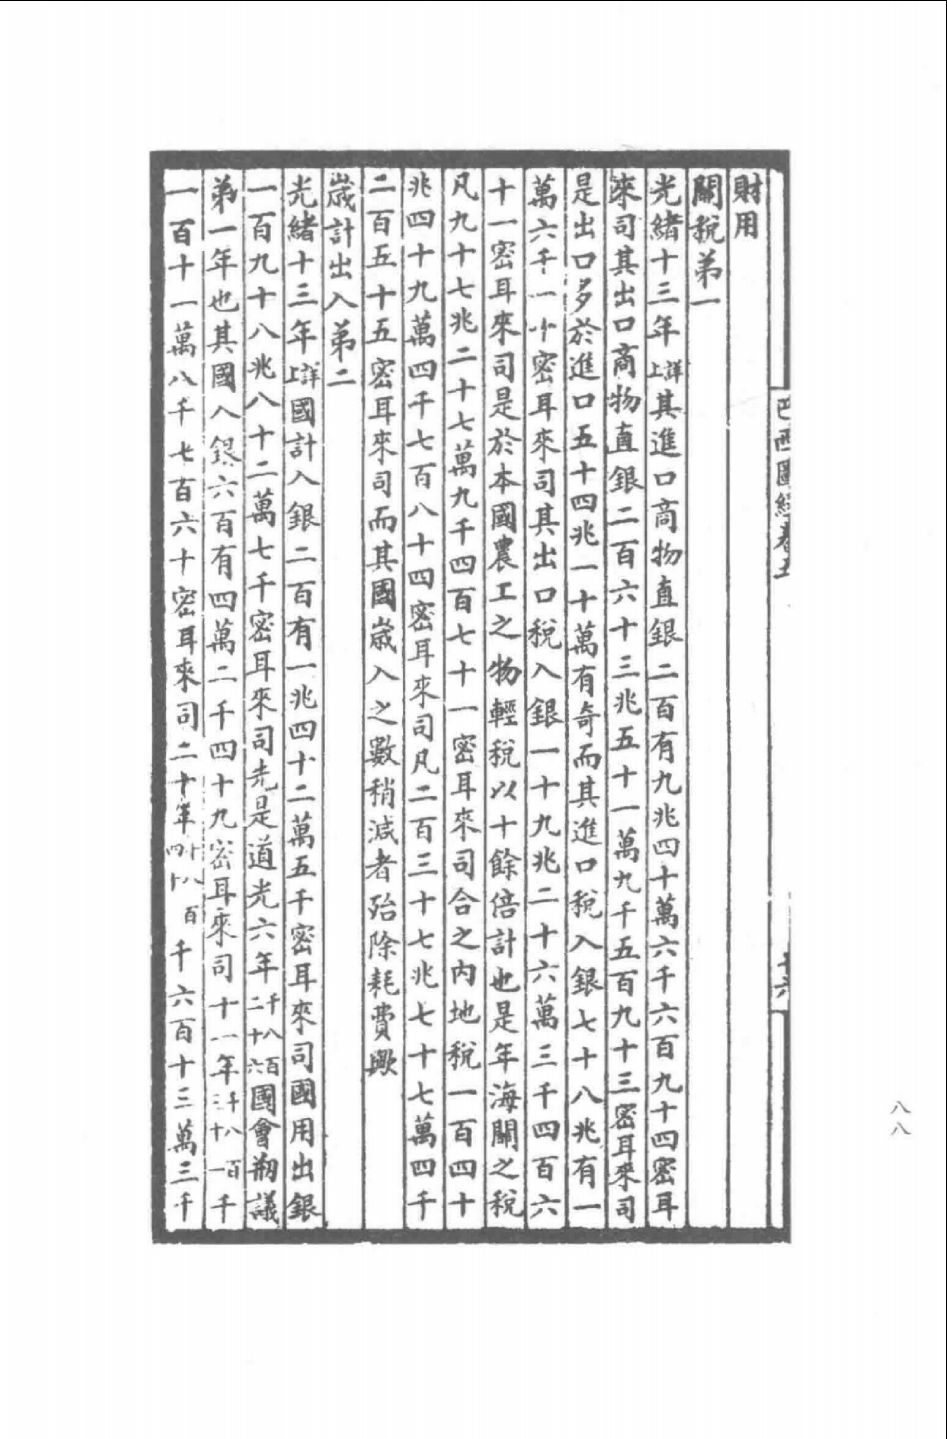 巴西圖經卷五
十六
財用
關稅第一
光緒十三年詳上其進口商物直銀二百有九兆四十萬六千六百九十四密耳
來司其出口商物直銀二百六十三兆五十一萬九千五百九十三密耳來司
是出口多於進口五十四兆一十萬有奇而其進口稅入銀七十八兆有一
萬六千一十密耳來司其出口稅入銀一十九兆二十六萬三千四百六
十一密耳來司是於本國農工之物輕稅以十餘倍計也是年海關之稅
凡九十七兆二十七萬九千四百七十一密耳來司合之內地稅一百四十
兆四十九萬四千七百八十四密耳來司凡二百三十七兆七十七萬四千
二百五十五密耳來司而其國歲入之數稍減者殆除耗費歟
歲計出入第二
光緒十三年詳上國計入銀二百有一兆四十二萬五千密耳來司國用出銀
一百九十八兆八十二萬七千密耳來司先是道光六年千八百二十六國會剏議
第一年也其國入銀六百有四萬二千四十九密耳來司十一年千八百三十一千
一百十一萬八千七百六十密耳來司二十年千六百十三萬三千
八八